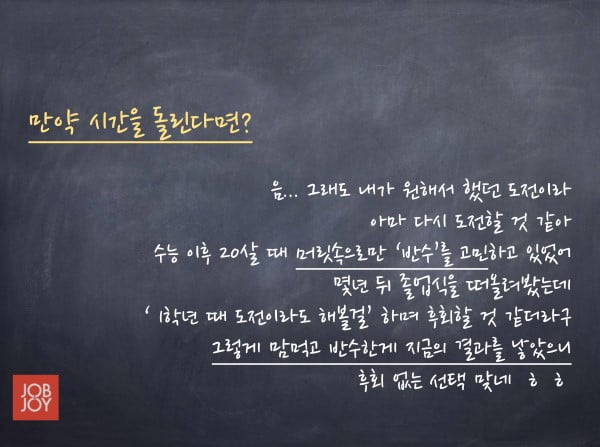 만약 시간을 돌린다면?
음... 그래도 내가 원해서 했던 도전이라
아마 다시 도전할 것 같아
수능 이후 20살 때 머릿속으로만 ‘반수’를 고민하고 있었어
몇년 뒤 졸업식을 떠올려봤는데
‘ 1학년 때 도전이라도 해볼걸’ 하며 후회할 것 같더라구
그렇게 맘먹고 반수한게 지금의 결과를 낳았으니
후회 없는 선택 맞네 ㅎ ㅎ
JOB
JOY